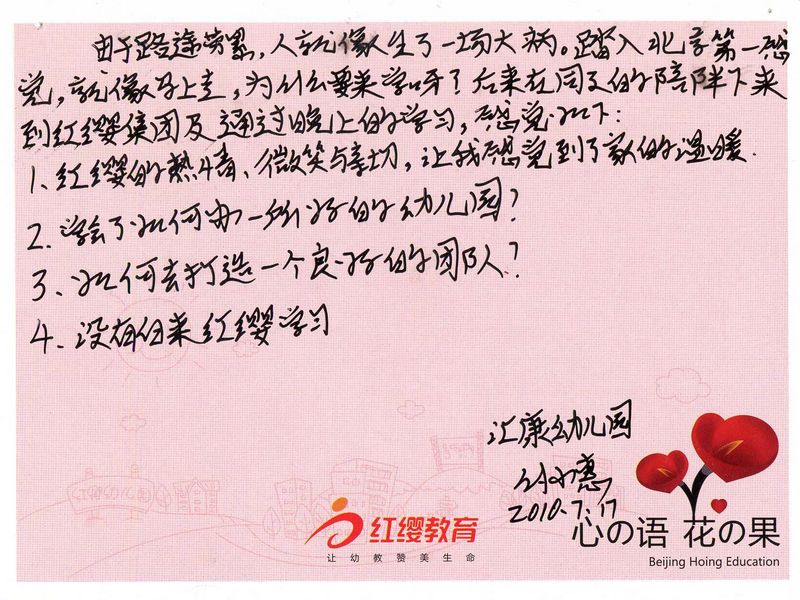 由于路途劳累，人就像人生了一场大病。踏入北京第一感
觉，就像马上走，为什么要来学呀？后来在同文的陪伴下来
到红缨集团及通过晚上的学习，感觉如下：
1、红缨的热情、微笑与亲切，让我感觉到了家的温暖.
2、学会了如何办一所好的幼儿园？
3、如何去打造一个良好的团队？
4、没有白来红缨学习
汇康幼儿园
2010.7.17
红缨教育
让幼教赞美生命
心の语 花の果
Beijing Hoing Education